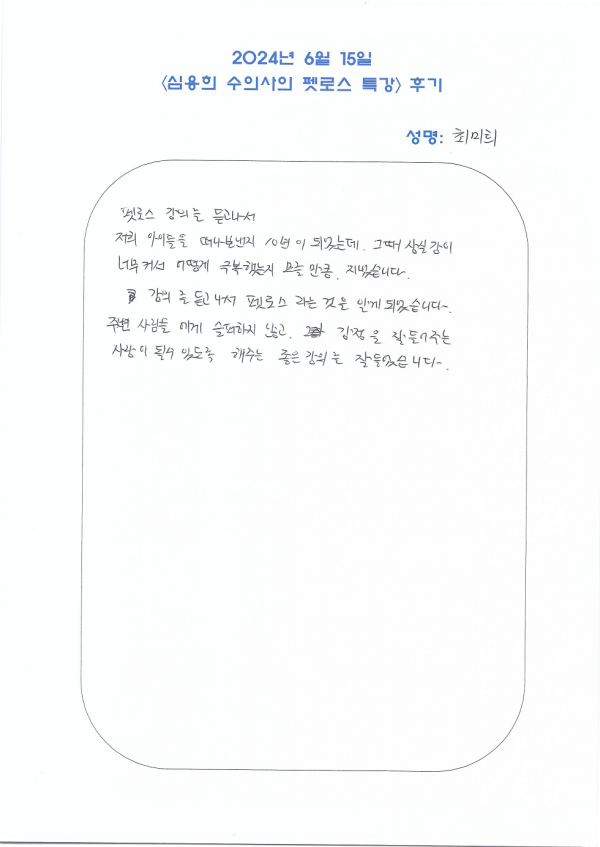 2024년 6월 15일
<심용희 수의사의 펫로스 특강> 후기
성명: 최미희
펫로스 강의를 듣고나서
저희 아이들을 떠나보낸지 10년이 되었는데. 그때 상실감이
너무커서 어떻게 극복했는지 모를 만큼. 지냈습니다.
강의를 듣고나서 펫로스 라는 것을 알게 되었습니다~.
주변 사람들 에게 슬퍼하지 않고. 감정을 잘 들어주는
사람이 될수 있도록 해주는 좋은강의를 잘들었습니다~.